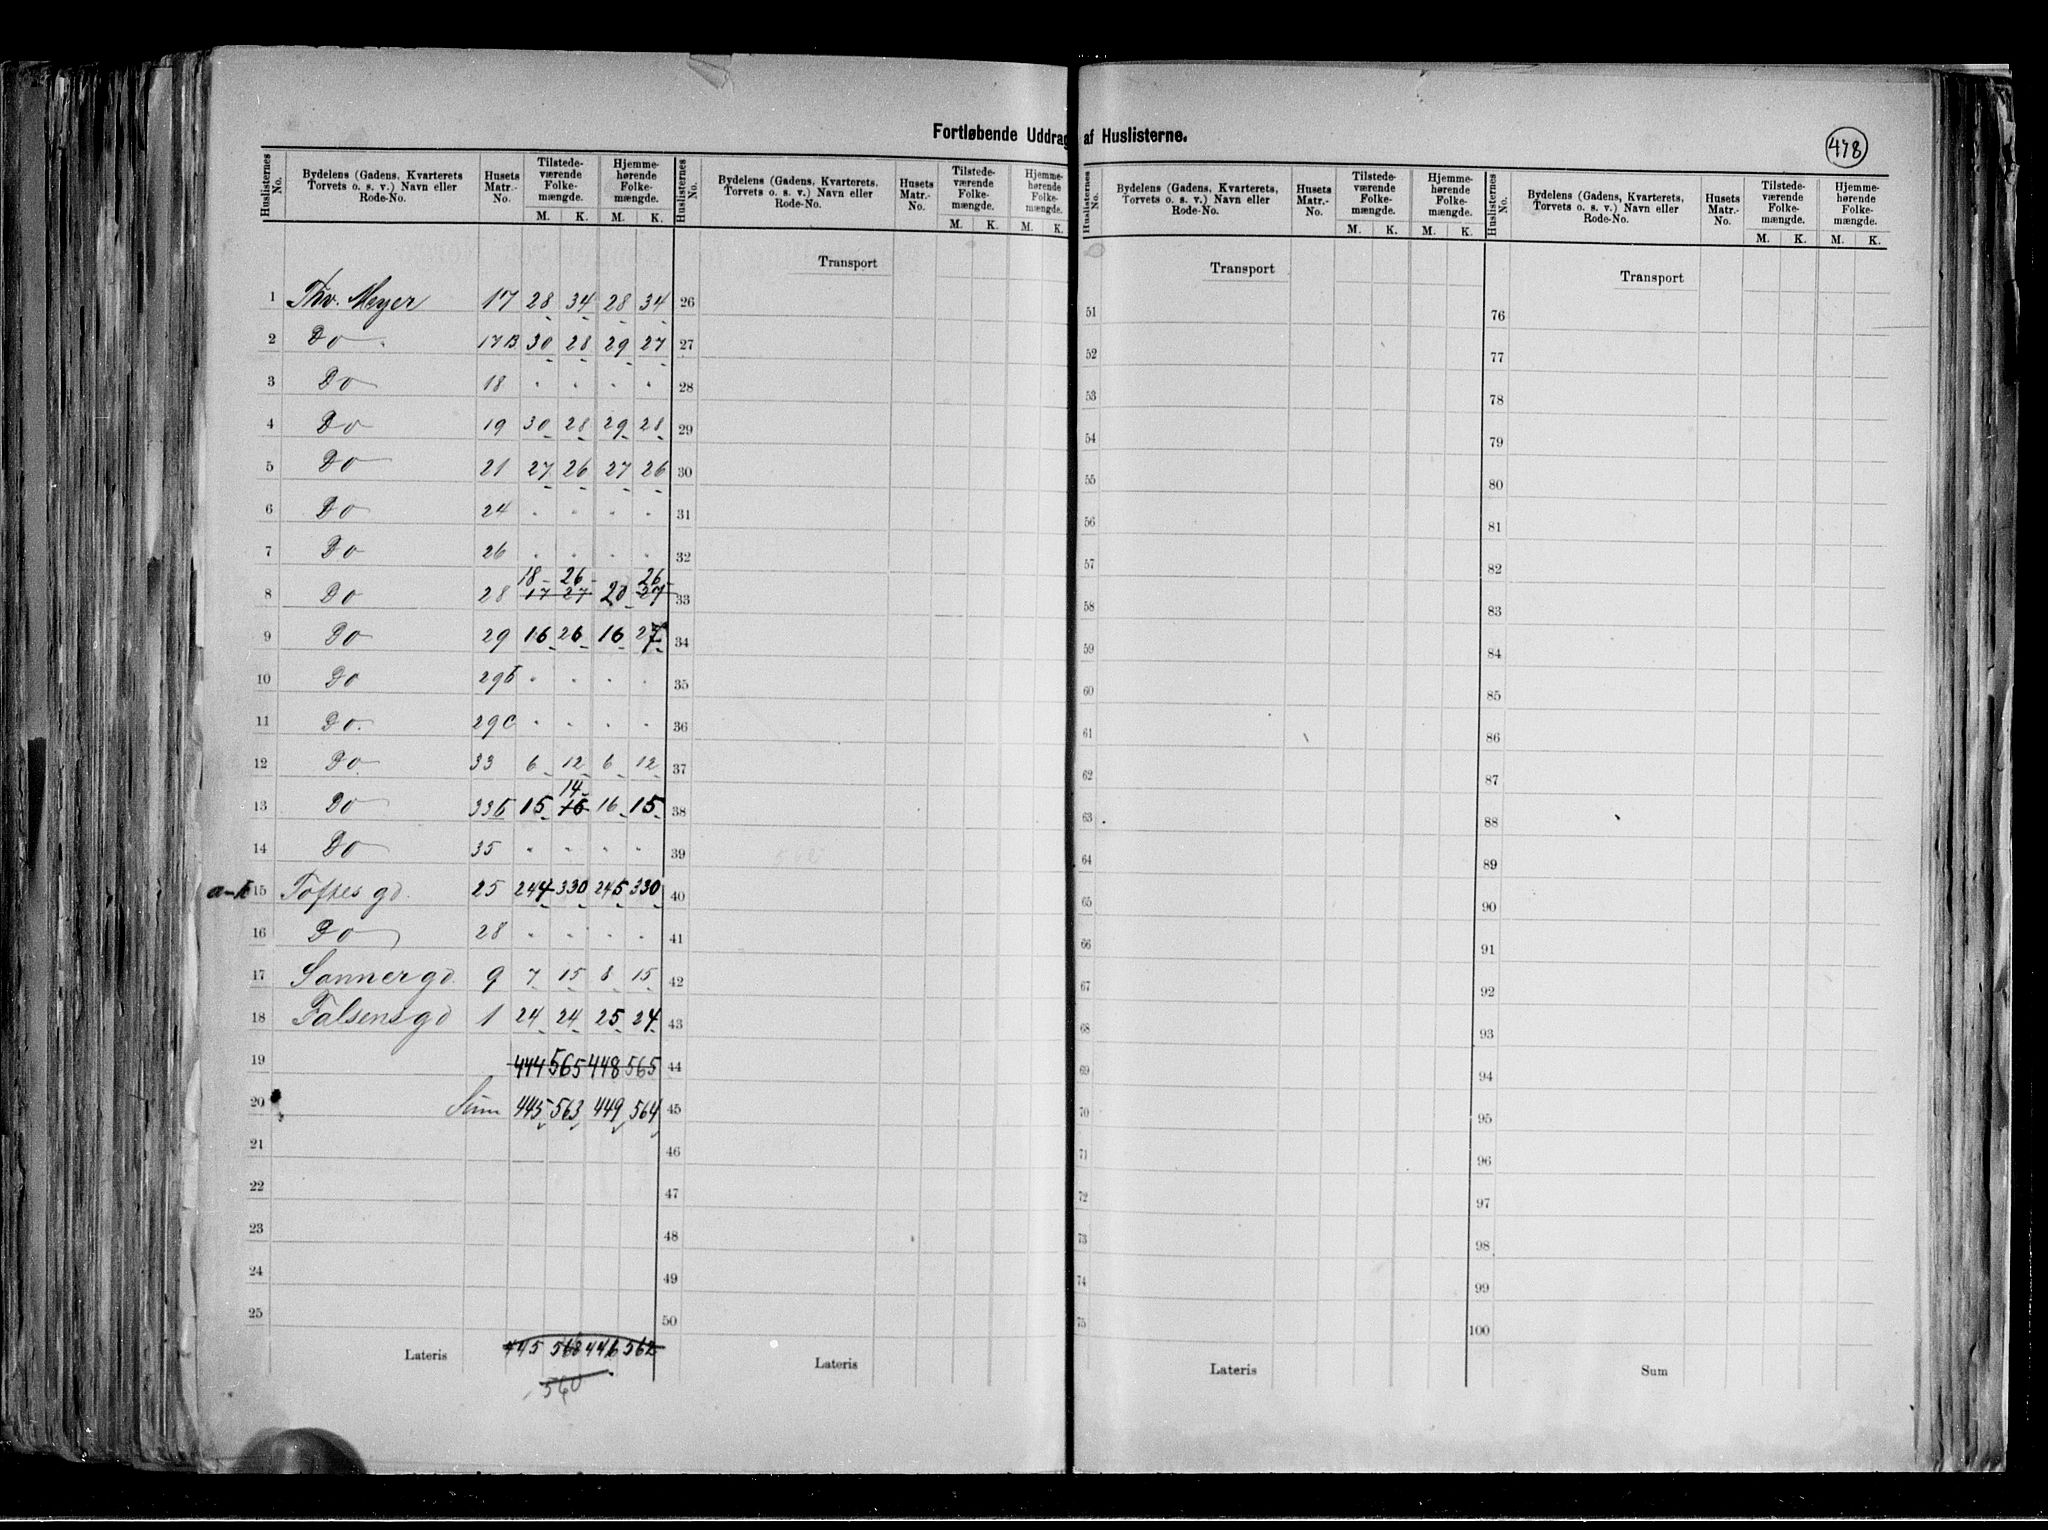 Fortløbende Uddrag af Huslisterne.
478
Huslisternes No. Bydelens (Gadens, Kvarterets Torvets o. s. v.) Navn eller Rode-No. Husets Matr.-No. Tilstedeværende Folkemængde. M. K. Hjemmehørende Folkemængde. M. K.
Huslisternes No. Bydelens (Gadens, Kvarterets, Torvets o. s. v.) Navn eller Rode-No. Husets Matr.-No. Tilstedeværende Folkemængde. M. K. Hjemmehørende Folkemængde. M. K.
Huslisternes No. Bydelens (Gadens, Kvarterets, Torvets o. s. v.) Navn eller Rode-No. Husets Matr.-No. Tilstedeværende Folkemængde. M. K. Hjemmehørende Folkemængde. M. K.
Huslisternes No. Bydelens (Gadens, Kvarterets, Torvets o. s. v.) Navn eller Rode-No. Husets Matr.-No. Tilstedeværende Folkemængde. M. K. Hjemmehørende Folkemængde. M. K.
Transport Transport Transport
1 Thv. Meyer 17 28 34 28 34 26 51 76
2 Do 17B 30 28 29 27 27 52 77
3 Do 18 " " " " 28 53 78
4 Do 19 30 28 29 28 29 54 79
5 Do 21 27 26 27 26 30 55 80
6 Do 24 " " " " 31 56 81
7 Do 26 " " " " 32 57 82
18 26 26
8 Do 28 17 27 20 27 33 58 83
9 Do 29 16 26 16 27 34 59 84
10 Do 29b " " " " 35 60 85
11 Do. 29C " " " " 36 61 86
12 Do 33 6 12 6 12 37 62 87
14
13 Do 33b 15 16 16 15 38 63 88
14 Do 35 " " " " 39 64 89
15 Toftes gd. 25 244 330 245 330 40 65 90
16 Do 28 " " " " 41 66 91
17 Sannergd. 9 7 15 8 15 42 67 92
18 Falsensgd 1 24 24 25 24 43 68 93
19 444 565 448 565 44 69 94
20 Sum 445 563 449 564 45 70 95
21 46 71 96
22 47 72 97
23 48 73 98
24 49 74 99
25 50 75 100
Lateris 445 446 562 Lateris Lateris Sum
560